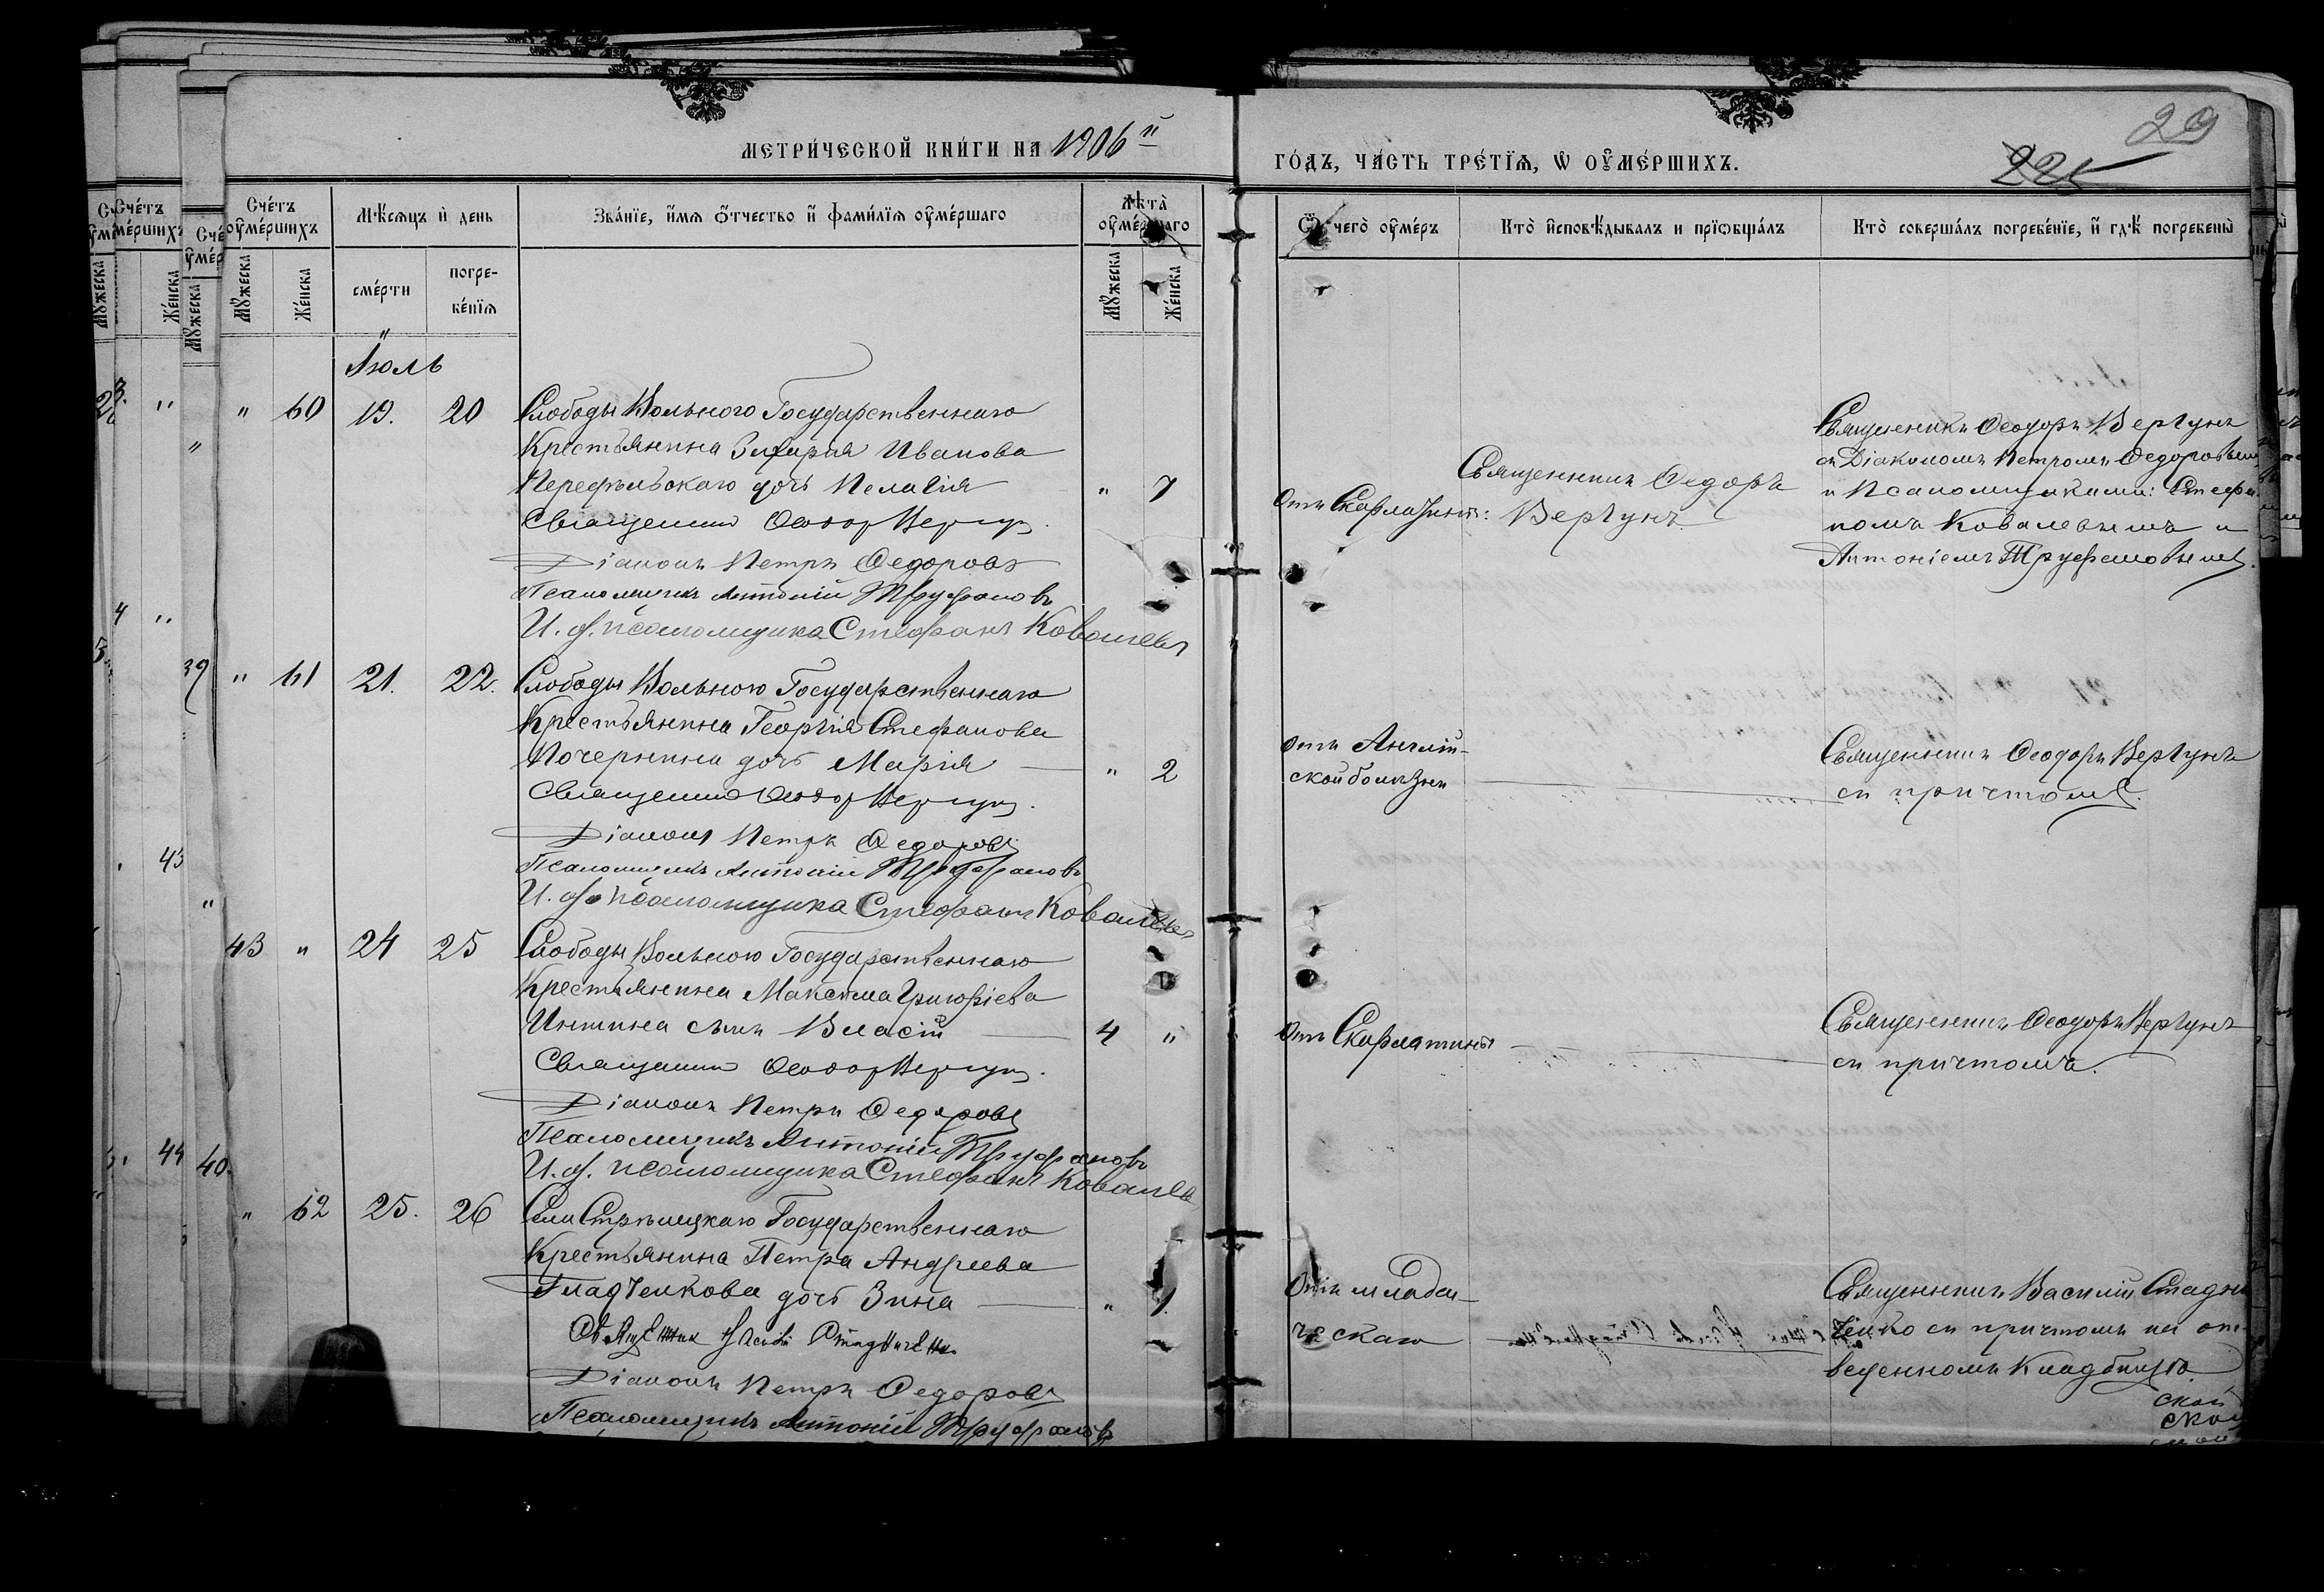 МЕТРИ́ЧЕСКОЙ КНИ́ГИ НА 1906й
ГО́ДЪ, ЧА́СТЬ ТРЕ́ТЇѦ, Ѡ҆ ОУ҆МЕ́РШИХЪ.
29
225
Сче́тъ оу҆ме́ршихъ
Мѣ́сѧцъ и҆ день
Зва́нїе, и҆́мѧ ѻ҆́тчество и҆ фами́лїѧ оу҆ме́ршаго
Лѣ̀та оу҆ме́ршаго
Ѿ чегѡ̀ оу҆ме́ръ
Кто̀ и҆сповѣ́дывалъ и прїѡбща́лъ
Кто̀ соверша́лъ погребе́нїе, и҆ гдѣ̀ погребены̀
Мꙋ́жеска
Же́нска
сме́рти
погре-
бе́нїѧ
Мꙋ́жеска
Же́нска
Іюль
" 60 19. 20 Слободы Вольного Государственнаго
Крестьянина Захарія Иванова
Перефельскаго дочь Пелагія " 7
Священникъ Феодоръ Вергунъ.
Діаконъ Петръ Федоровъ
Псаломщикъ Антоній Труфановъ
И. об. псаломщика Стефанъ Ковалевъ
Отъ Скарлатины:
Священникъ Федоръ
Вергунъ
Священникъ Феодоръ Вергунъ
съ Діакономъ Петромъ Федоровымъ
и Псаломщиками: Стефа-
номъ Ковалевымъ и
Антоніемъ Труфановымъ.
" 61 21. 22. Слободы Вольного Государственнаго
Крестьянина Георгія Стефанова
Почернина дочь Марія " 2
Священникъ Феодоръ Вергунъ.
Діаконъ Петръ Федоровъ
Псаломщикъ Антоній Труфановъ
И. об. псаломщика Стефанъ Ковалевъ
Отъ Англій-
ской болѣзни
Священникъ Феодоръ Вергунъ
съ причтомъ.
43 " 24 25 Слободы Вольного Государственнаго
Крестьянина Максима Григоріева
сынъ Власій 4 "
Священникъ Феодоръ Вергунъ.
Діаконъ Петръ Федоровъ
Псаломщикъ Антоній Труфановъ
И. об. псаломщика Стефанъ Ковалевъ
Отъ Скарлатины
Священникъ Феодоръ Вергунъ
съ причтомъ.
" 62 25. 26 Села Стрѣлицкаго Государственнаго
Крестьянина Петра Андреева
Гладченкова дочь Зина " 1
Священник Васілій Стадниченко
Діаконъ Петръ Федоровъ
Псаломщикъ Антоній Труфановъ
Отъ младен-
ческаго
Священникъ Василій Стадни-
ченко съ причтомъ на от-
веденномъ кладбищѣ.